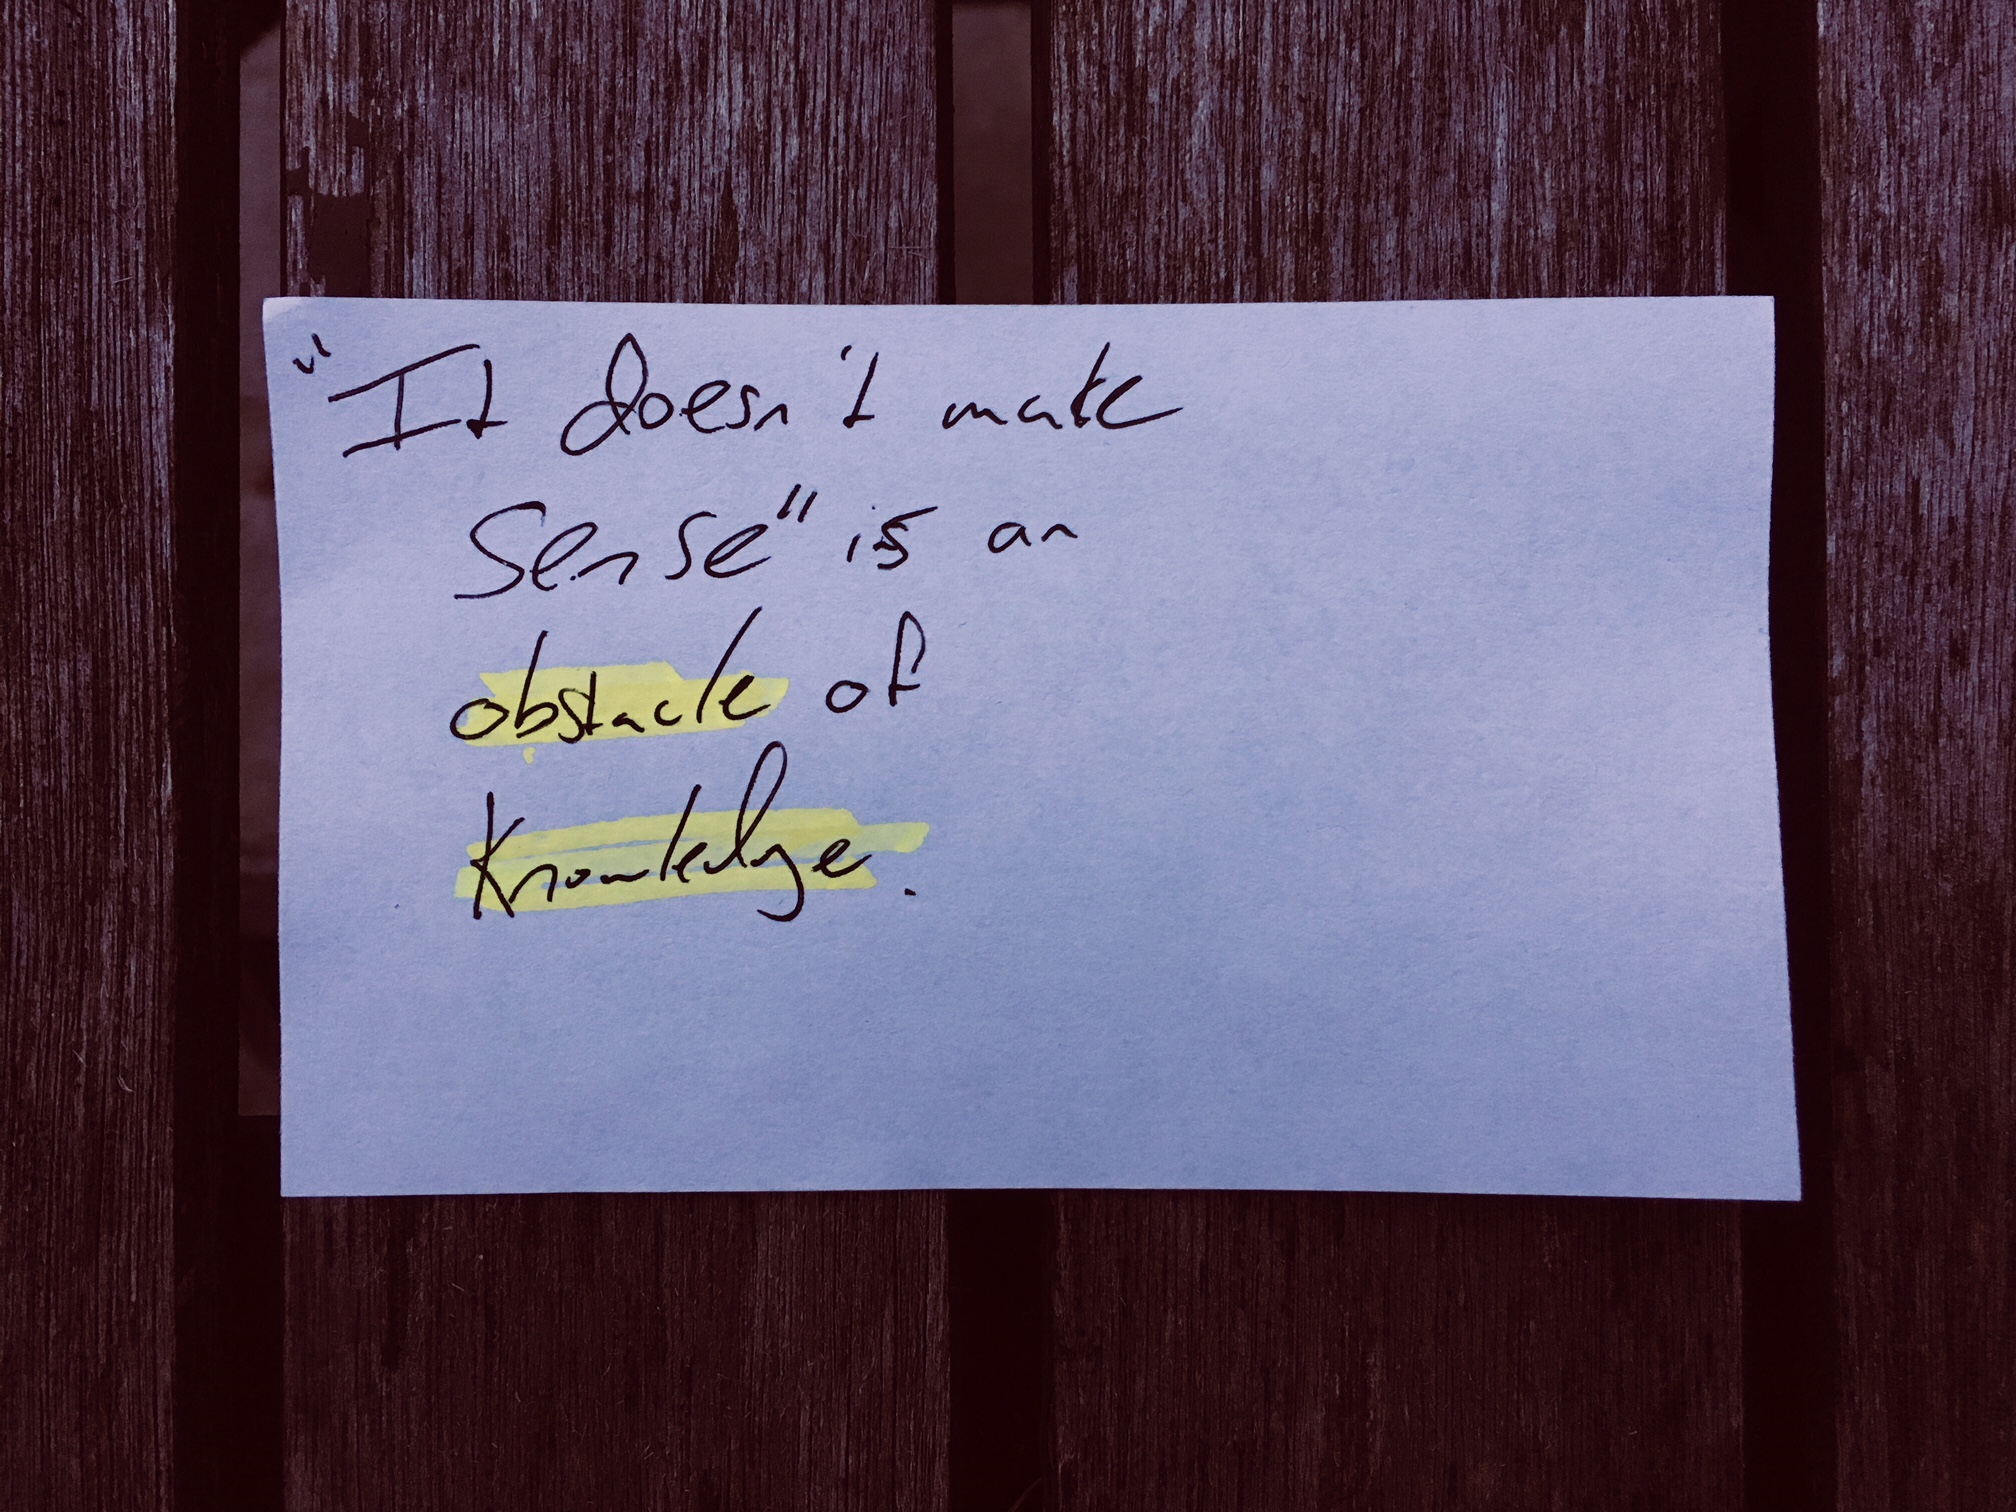 "It doesn't make
Sense" is an
obstacle of
Knowledge.